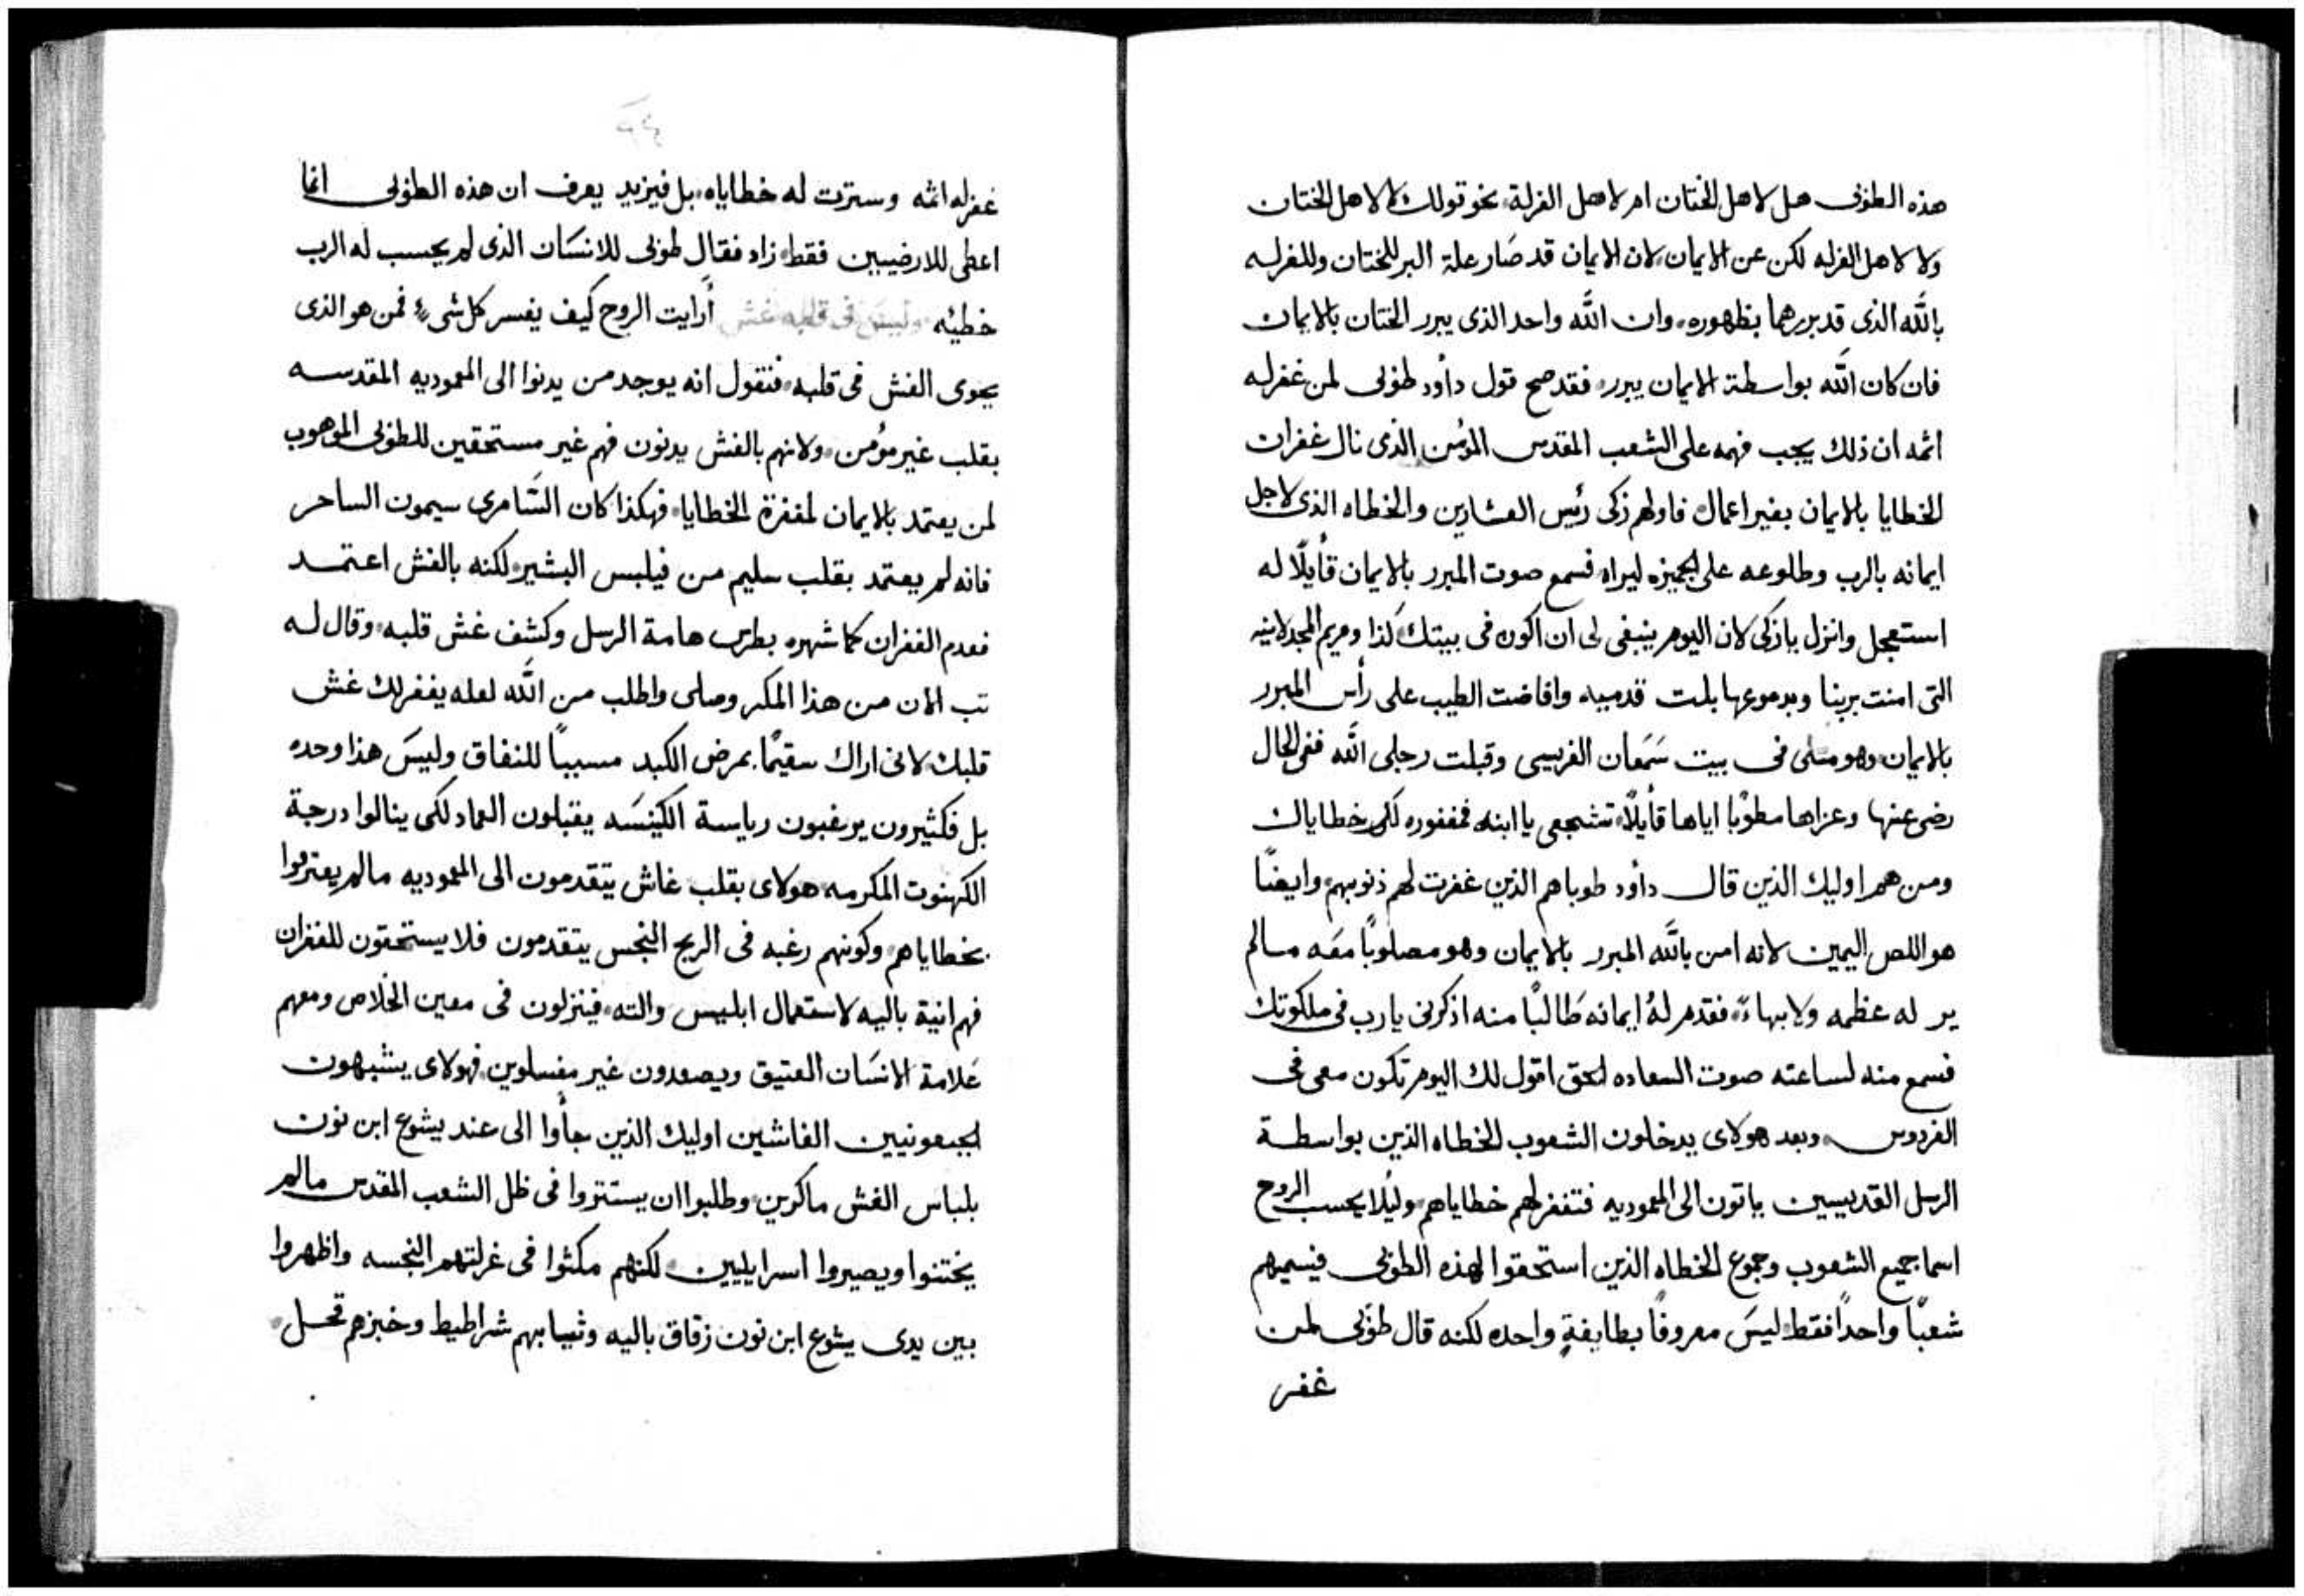 هذه الطوبى هل لاهل الختان ام لاهل الغرلة، نحو قولك لا لاهل الختان
ولا لاهل الغرله لكن عن الايمان، لان الايمان قد صَار علة البر للختان وللغرله
بالله الذى قد بررهما بظهوره، وان الله واحد الذى يبرر الختان بالايمان
فان كان الله بواسطة الايمان يبرر، فقد صح قول دأود طوبى لمن غفر له
اثمه ان ذلك يجب فهمه على الشعب المقدس المؤمن الذى نال غفران
الخطايا بالايمان بغير اعمال، فاولهم زكى رئيس العشارين والخطاه الذى لاجل
ايمانه بالرب وطلوعه على الجميزه ليراه، فسمع صوت المبرر بالايمان قأيلًا له
استعجل وانزل يا زكى لان اليوم ينبغى لى ان اكون فى بيتك، كذا ومريم المجدلانيه
التى امنت بربنا وبدموعها بلت قدميه وافاضت الطيب على رأس المبرر
بالايمان، وهو متكى فى بيت سَمَعان الفريسى وقبلت رجلى الله ففى الحال
رضى عنها وعزاها مطوّبا اياها قأيلاً، تشجعى يا ابنه فمغفوره لكى خطاياك
ومن هم اوليك الذين قال دأود طوباهم الذين غفرت لهم ذنوبهم، وايضًا
هو اللص اليمين لانه امن بالله المبرر بالايمان وهو مصلوبًا معَه مالم
ير له عظمه ولا بهاءً، فقدم لهُ ايمانه طَالبًا منه اذكرنى يارب فى ملكوتك
فسمع منه لساعته صوت السعاده الحق اقول لك اليوم تكون معى فى
الفردوس، وبعد هولاى يدخلون الشعوب الخطاه الذين بواسطة
الرسل القديسين ياتون الى المعموديه فتغفر لهم خطاياهم، وليُلا يحسب الروح
اسما جميع الشعوب وجموع الخطاه الذين استحقوا لهذه الطوبى فيسميهم
شعبًا واحدًا فقط، ليسَ معروفًا بطايفةٍ واحده لكنه قال طوَبى لمن
غفر
غفر له اثمه وسترت له خطاياه، بل فيزيد يعرف ان هذه الطوبى انما
اعطى للارضيين فقط، زاد فقال طوبى للانسَان الذى لم يحسب له الرب
خطيئه، وليسَ فى قلبه غش أرايت الروح كيف يفسر كل شىءٍ، فمن هو الذى
يحوى الغش فى قلبه، فنقول انه يوجد من يدنوا الى المعموديه المقدسه
بقلب غير مؤمن، ولانهم بالغش يدنون فهم غير مستحقين للطوبى الموهوب
لمن يعتمد بالايمان لمغفرة الخطايا، فهكذا كان السَّامرى سيمون الساحر
فانه لم يعتمد بقلب سليم من فيلبس البشير، لكنه بالغش اعتمد
فعدم الغفران كما شهره بطرس هامة الرسل وكشف غش قلبه، وقال له
تب الان من هذا المكر وصلى واطلب من الله لعله يغفر لك غش
قلبك، لانى اراك سقيمًا بمرض الكبد مسببًا للنفاق وليسَ هذا وحده
بل فكثيرون يرغبون رياسة الكينسَه يقتبلون العماد لكى ينالوا درجة
الكهنوت المكرمه، هولاى بقلب غاش يتقدمون الى المعموديه مالم يعترفوا
بخطاياهم، وكونهم رغبه فى الربح النجس يتقدمون فلا يستحقون للغفران
فهم انية باليه لاستعمال ابليس والته، فينزلون فى معين الخَلاص ومعهم
عَلامة الانسَان العتيق ويصعدون غير مغسلوين، فهولاى يشبهون
الجبعونيين الغاشين اوليك الذين جأوا الى عند يشوع ابن نون
بلباس الغش ماكرين، وطلبوا ان يستتروا فى ظل الشعب المقدس مالم
يختتنوا ويصيروا اسرايليين، لكنهم مكثوا فى غرلتهم النجسه واظهروا
بين يدى يشوع ابن نون زقاق باليه وثيابهم شراطيط وخبزهم قحل،